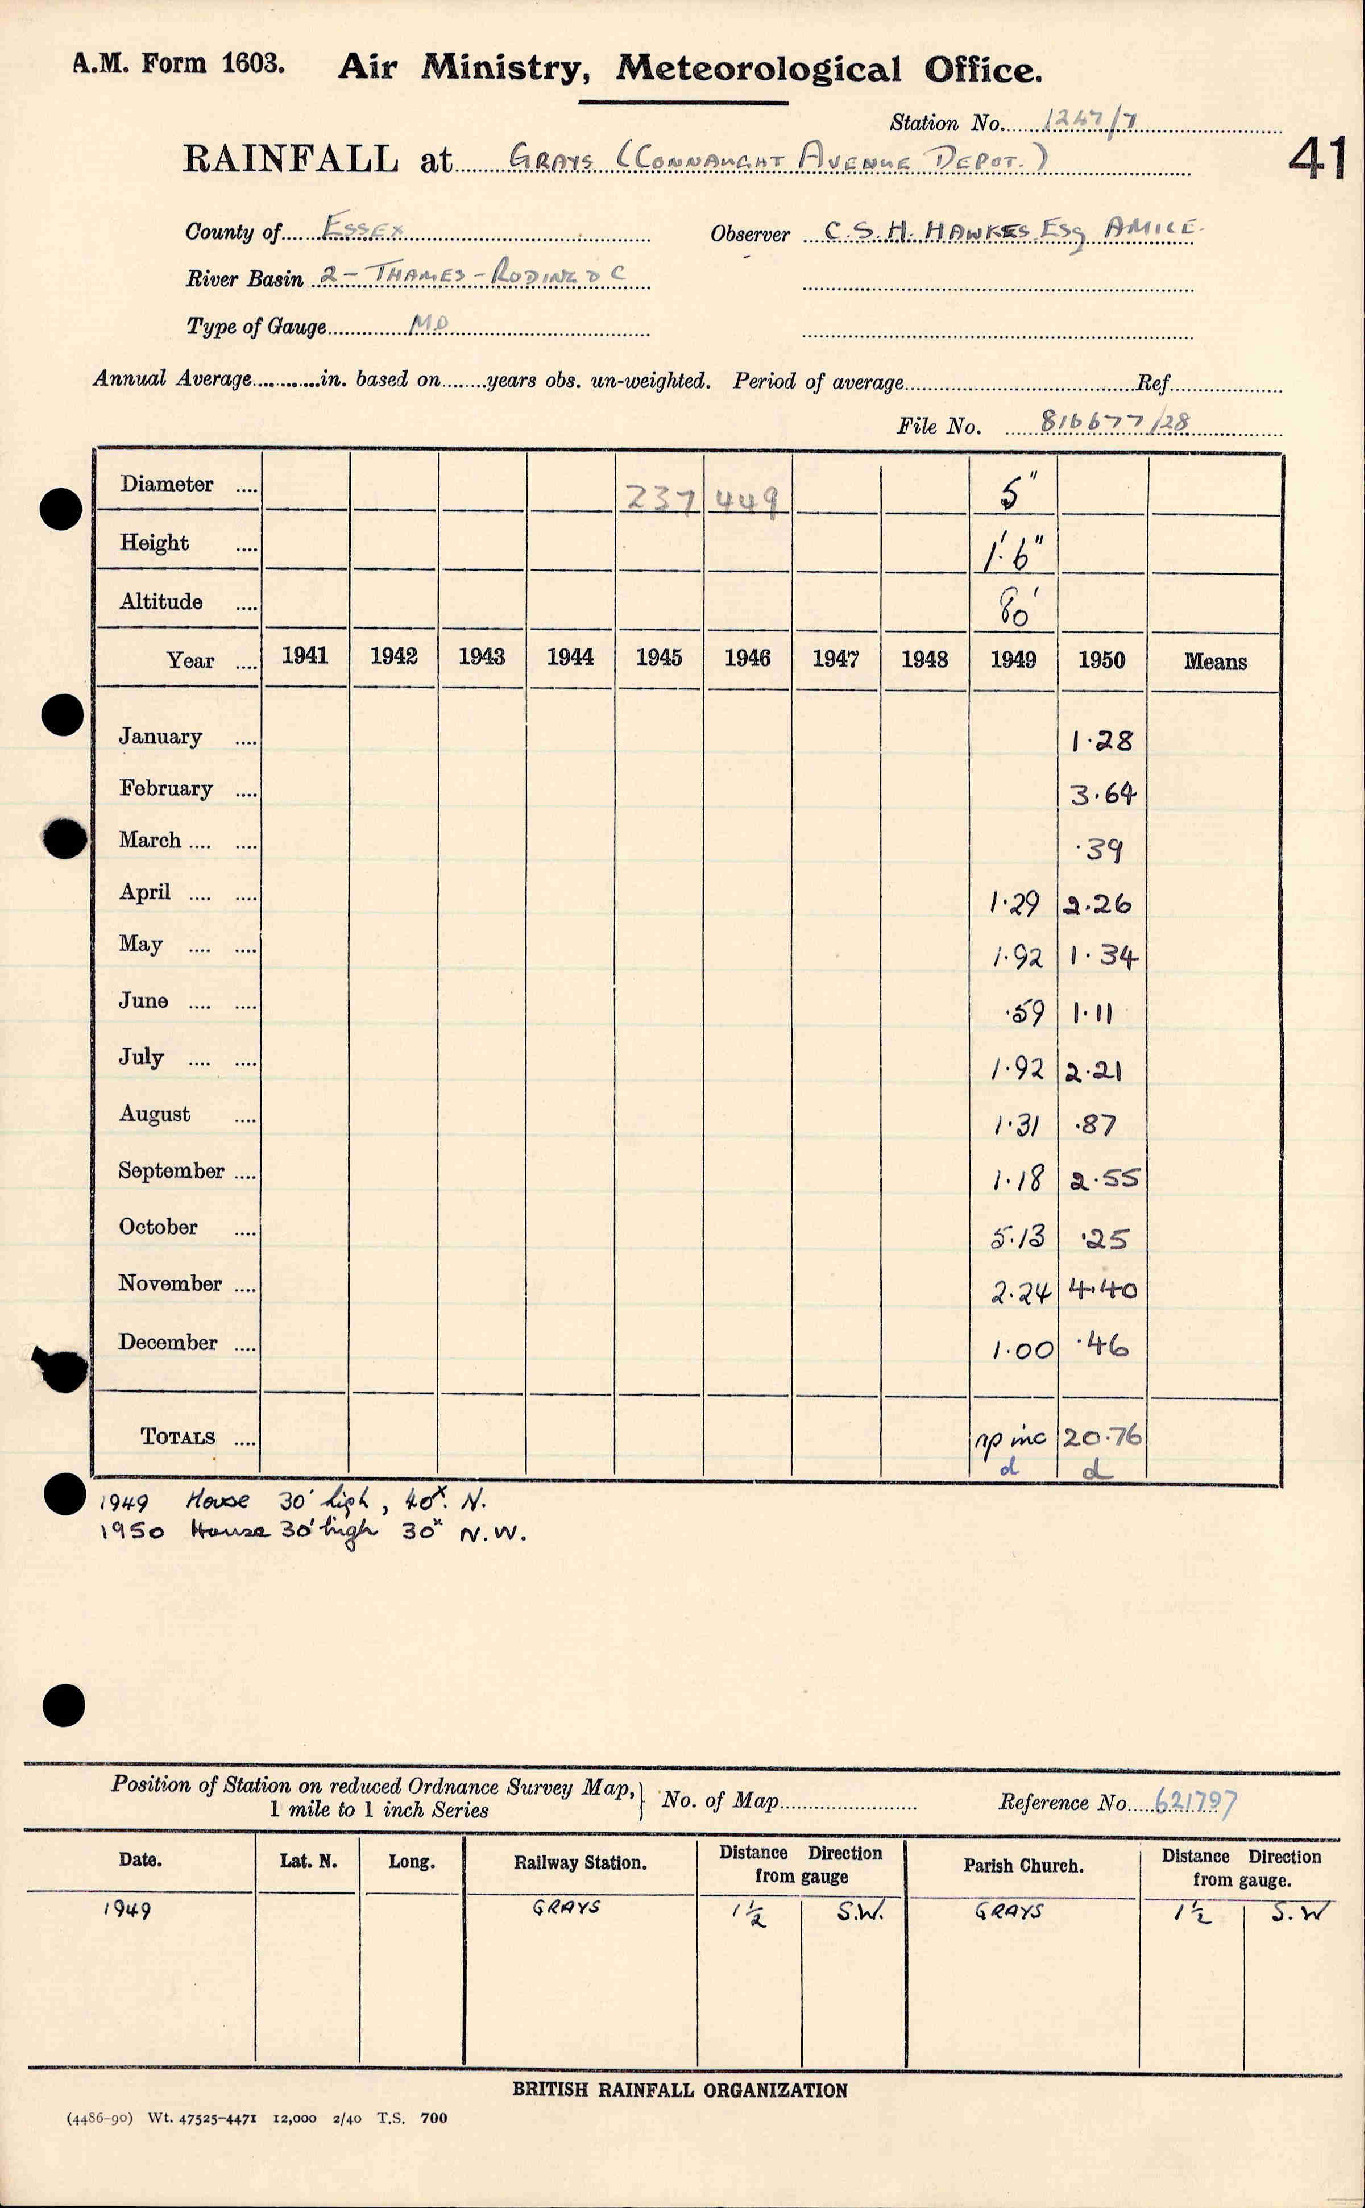 A.M. Form 1603. Air Ministry, Meteorological Office.
Station No. 1247/7
41
RAINFALL at GRAYS (CONNAUGHT AVENUE DEPOT.)
County of ESSEX Observer C.S.H. HAWKES Esq AMICE.
River Basin 2 - THAMES - RODING D C
Type of Gauge MO
Annual Average in. based on years obs. un-weighted. Period of average Ref
File No. 816677/28
Diameter 237 449 5"
Height 1'.6"
Altitude 80'
Year 1941 1942 1943 1944 1945 1946 1947 1948 1949 1950 Means
January 1.28
February 3.64
March .39
April 1.29 2.26
May 1.92 1.34
June .59 1.11
July 1.92 2.21
August 1.31 .87
September 1.18 2.55
October 5.13 .25
November 2.24 4.40
December 1.00 .46
TOTALS np inc 20.76
d d
1949 House 30' high, 40x. N.
1950 House 30' high 30x N.W.
Position of Station on reduced Ordnance Survey Map, } No. of Map Reference No. 621797
1 mile to 1 inch Series
Date. Lat. N. Long. Railway Station. Distance Direction from gauge Parish Church. Distance Direction from gauge.
1949 GRAYS 1½ S.W. GRAYS 1½ S.W
BRITISH RAINFALL ORGANIZATION
(4486-90) Wt. 47525-4471 12,000 2/40 T.S. 700